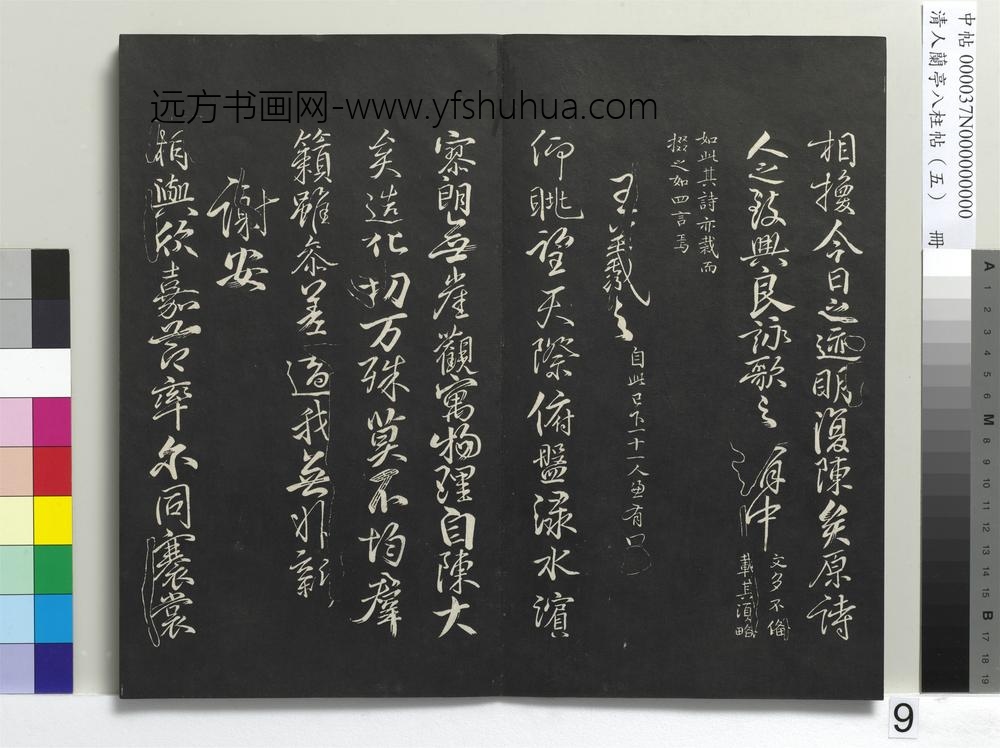 远方书画网-www.yfshuhua.com
相換今日之迹明復陳矣原詩
人之致興良詠歌之有由
文多不備
載其略
如此其詩亦裁而
掇之如四言焉
王羲之
自此已下十一人並有
仰眺望天際俯盤淥水濱
寥朗無崖觀寓物理自陳大
矣造化功万殊莫不均羣
籟雖叅差適我無非新
謝安
相與欣嘉節率尓同褰裳
中帖 000037N000000000
清人蘭亭八柱帖（五） 冊
A 1 2 3 4 5 6 M 8 9 10 11 12 13 14 15 B 17 18 19
9